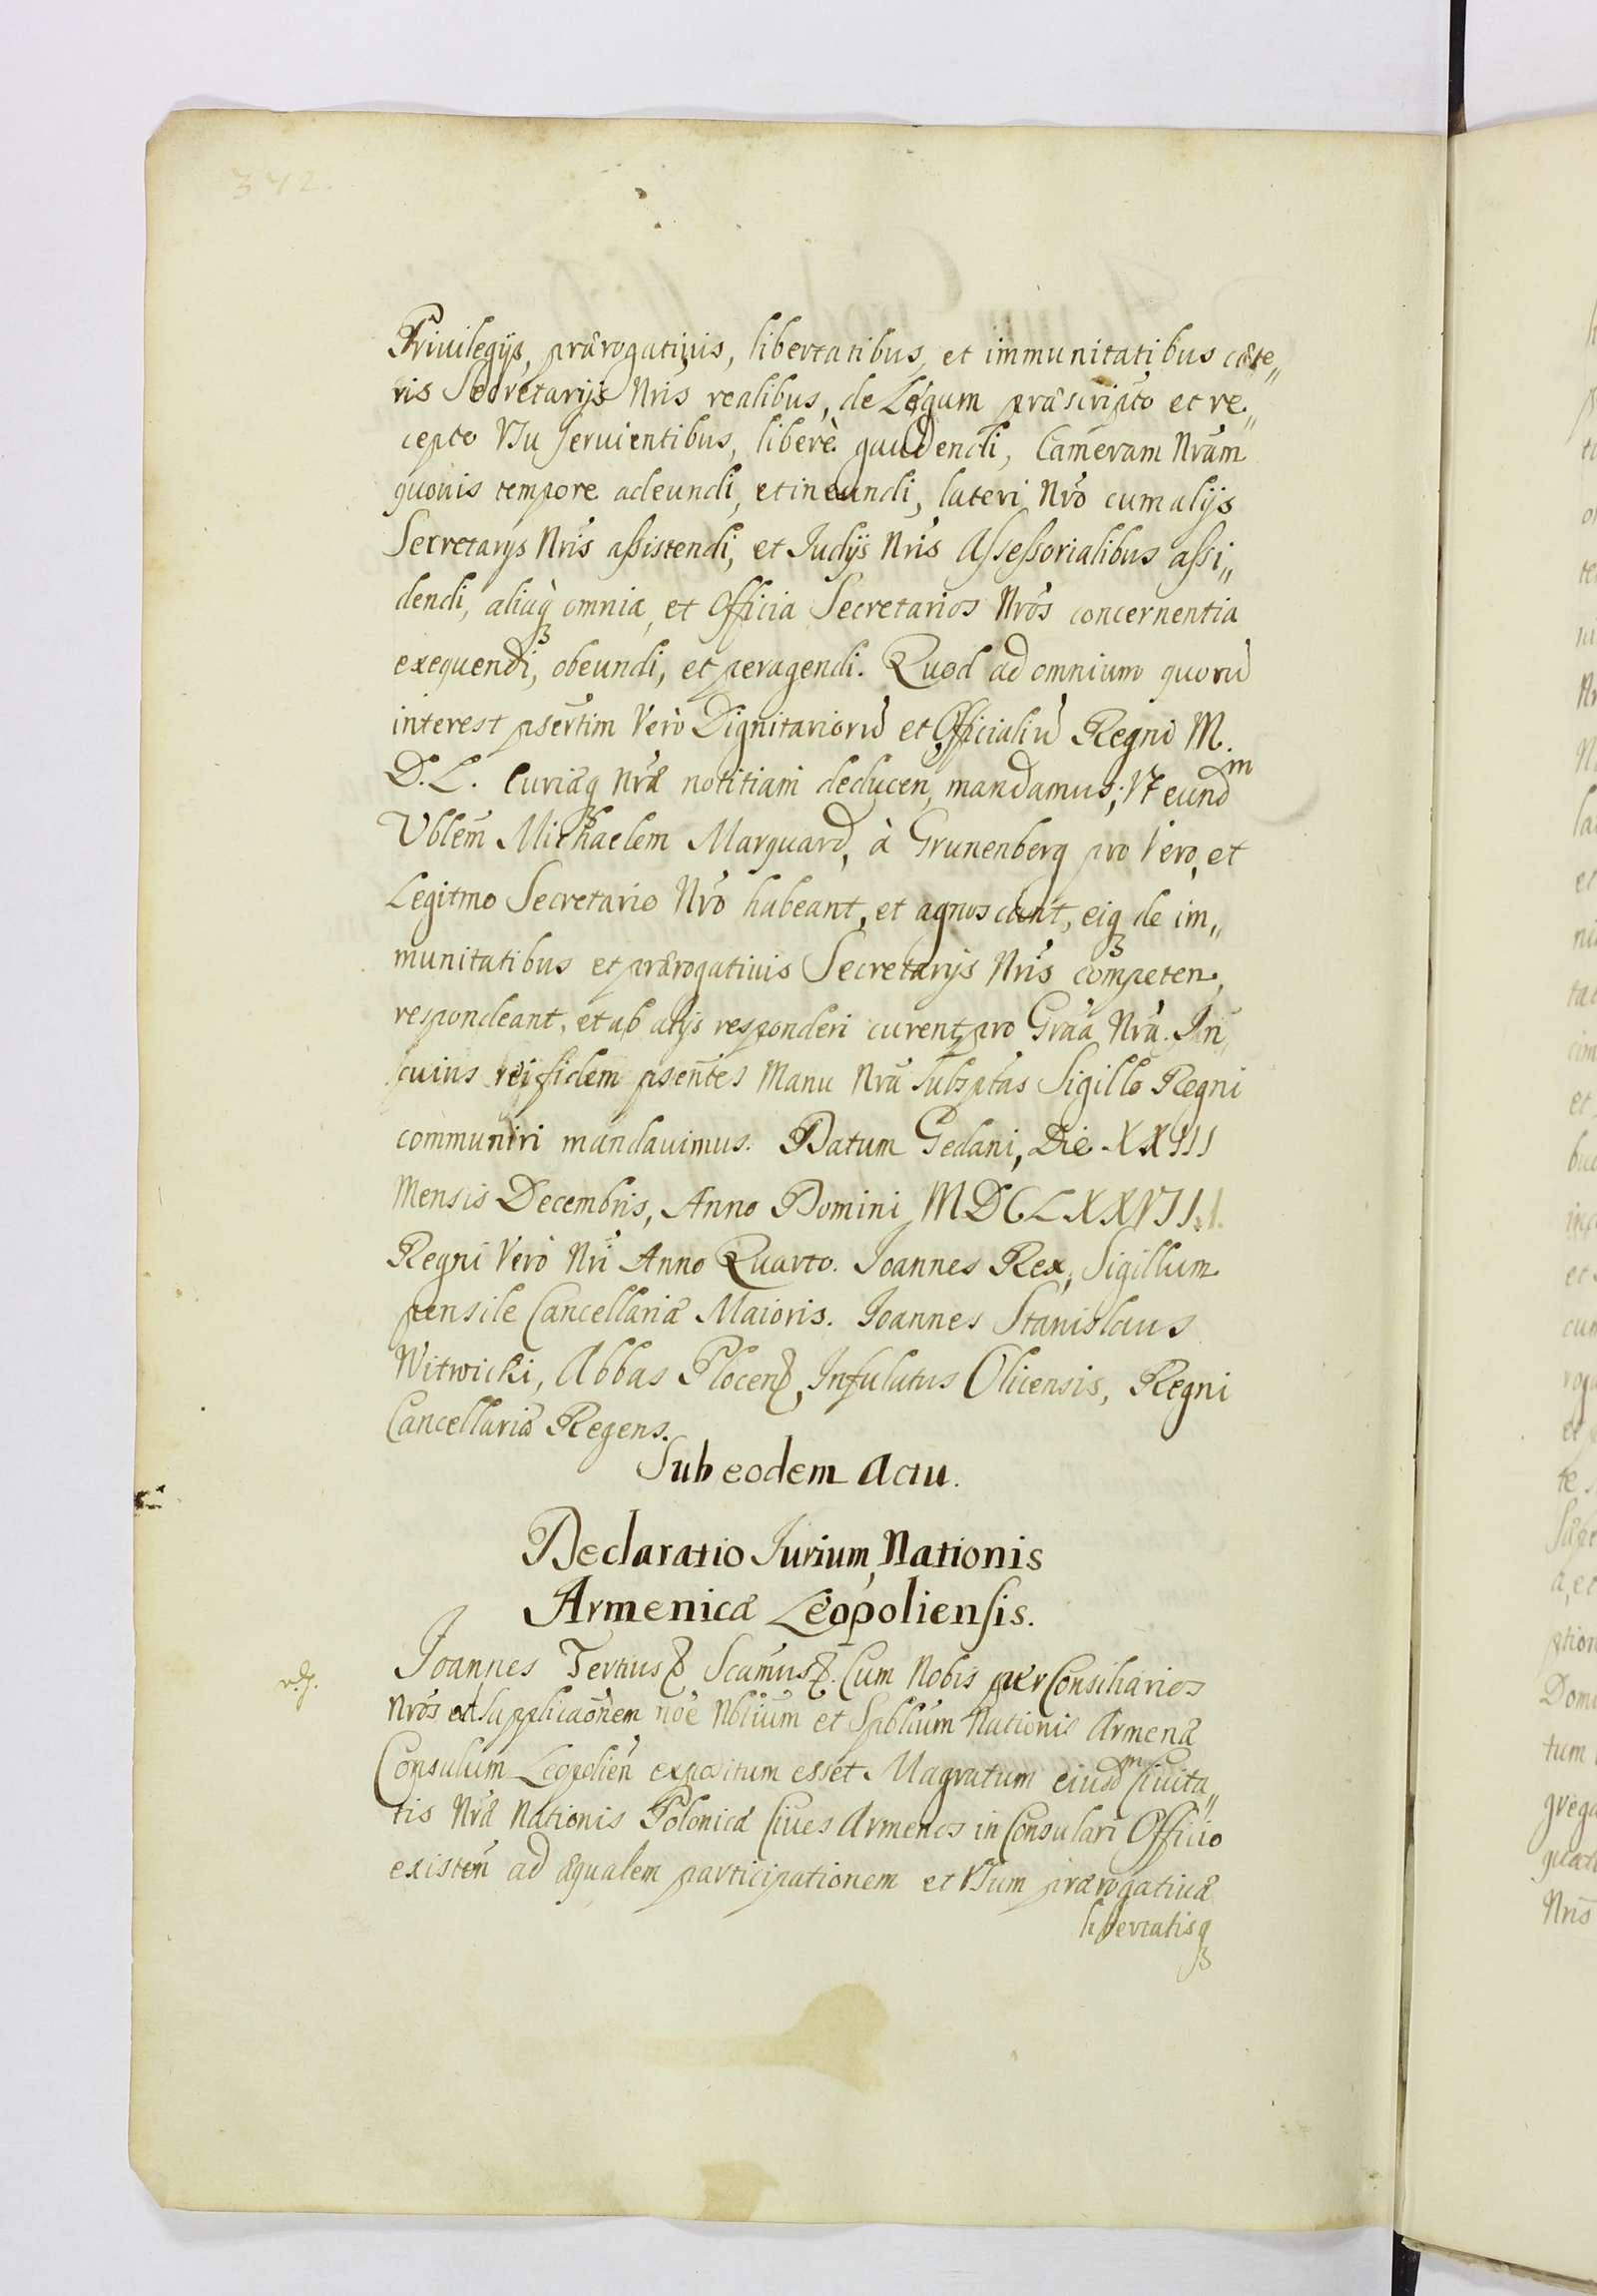 342.
Privilegijs, prærogativis, libertatibus, et immunitatibus cæte„
ris Secretarijs Nris realibus, de Legum præscripto et re„
cepto Vsu servientibus, liberè gaudendi, Cameram Nram
quovis tempore adeundi, et ineundi, lateri Nro cum alijs
Secretarijs Nris assistendi, et Judijs Nris Assessorialibus assi„
dendi, aliaq omnia, et Officia Secretarios Nros concernentia
exequendi, obeundi, et peragendi. Quod ad omnium quorū
interest psertim Verò Dignitariorū et Officialiū Regni M.
D. L. Curiæq Nræ notitiam deducen, mandamus; Vt eundm
Vblem Michaelem Marquard, à Grunenberg pro Vero, et
Legitmo Secretario Nro habeant, et agnoscant, eiq de im„
munitatibus et prærogativis Secretarijs Nris competen,
respondeant, et ab alijs responderi curent pro Graa Nra. In
cuius rei fidem psentes Manu Nra Subsptas Sigillo Regni
communiri mandavimus. Datum Gedani, Die XXIII
Mensis Decembris, Anno Domini MDCLXXVII.
Regni Verò Nri Anno Quarto. Joannes Rex, Sigillum
pensile Cancellariæ Maioris. Joannes Stanislaus
Witwicki, Abbas Plocen, Infulatus Olicensis, Regni
Cancellariæ Regens.
Sub eodem Actu.
Declaratio Jurium Nationis
Armenicæ Leopoliensis.
Joannes Tertius Scamus. Cum Nobis per Consiliarios
Nros et Supplicaonem noe Nblium et Spblium Nationis Armenæ
Consulum Leopolien expositum esset Magratum eiusdm Civita„
tis Nræ Nationis Polonicæ Cives Armenos in Consulari Officio
existen ad æqualem participationem et Vsum prærogativæ
libertatisq